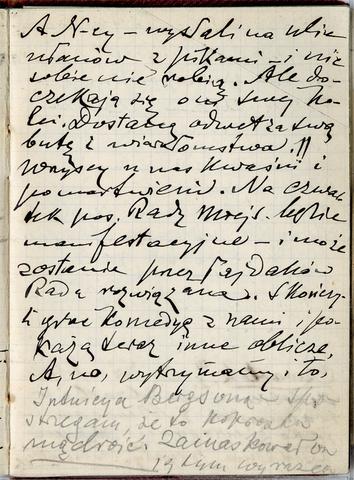 A N-cy – wysłali na ulic
ułanów z pikami – i nic
sobie nie robią. Ale do-
czekają się oni swej ko-
lei. Dostaną odwet za swą
butę i wiarołomstwo. //
Wszyscy u nas kwaśni i
pomartwieni. Na czwar-
tek pos. Rady Miejs. będzie
manifestacyjne – i może
zostanie przez Pajdaków
Rada rozwiązana. Skończy-
li grać komedyę z nami, po-
każą teraz inne oblicze.
A, no, wytrzymamy i to.
Intuicya Bergsona – spo-
strzegam, że to poprostu
mądrość. Zamaskował on
ją tym wyrazem